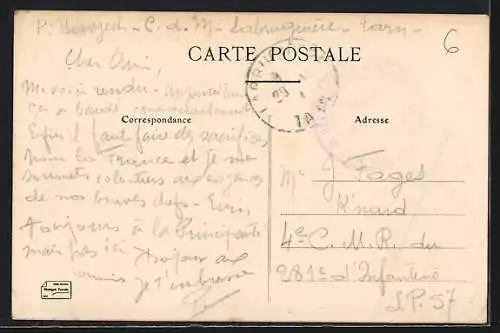 P. - C. d. M - Labruguière - Tarn -
6
CARTE POSTALE
Cher Ami,
Me voici rendu -
Ça a bardé
Correspondance
Adresse
Enfin il faut faire des sacrifices
pour la France et je me
soumets volontiers aux exigences
de nos braves chefs - Ecris
toujours à la Principauté
mais pas ici
amis je t'embrasse
TARN
Mr J Fages
K'nard
4e C. M. R. du
281e d'Infanterie
S.P. 57